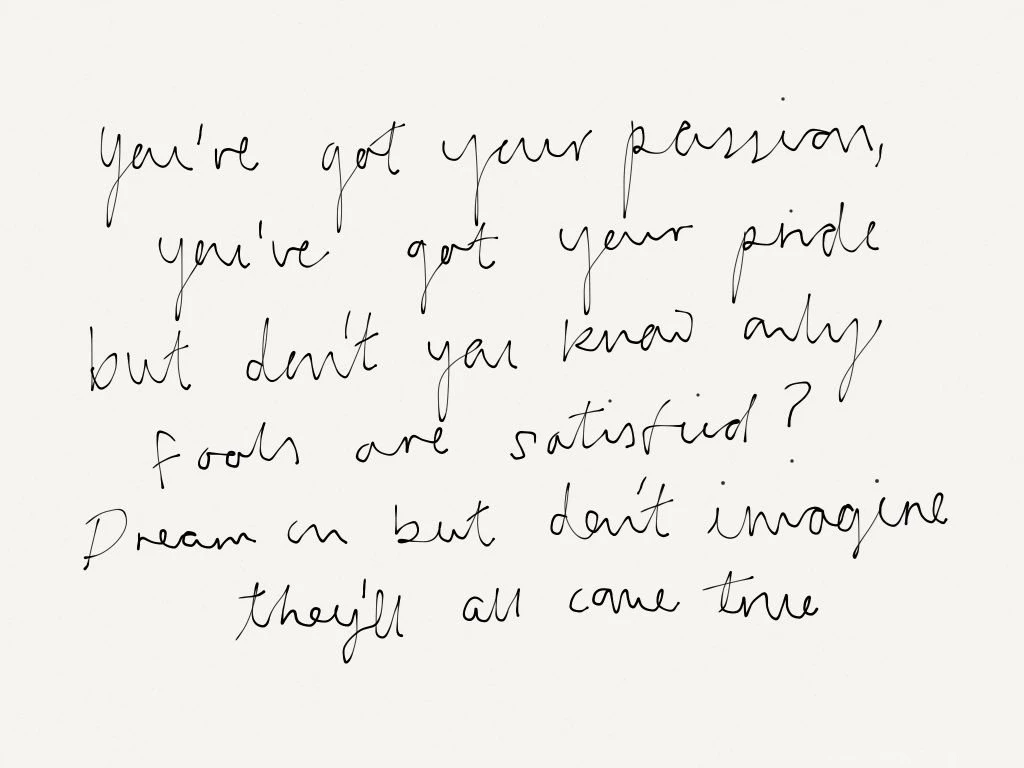 you've got your passion,
you've got your pride
but don't you know only
fools are satisfied?
Dream on but don't imagine
they'll all come true